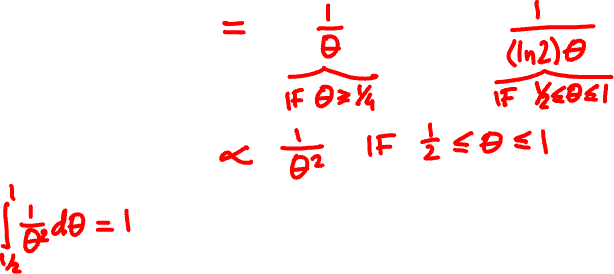 = 1/θ 1/((ln2)θ)
IF θ ≥ 1/4 IF 1/2 ≤ θ ≤ 1
∝ 1/θ² IF 1/2 ≤ θ ≤ 1
∫_{1/2}^{1} 1/θ² dθ = 1